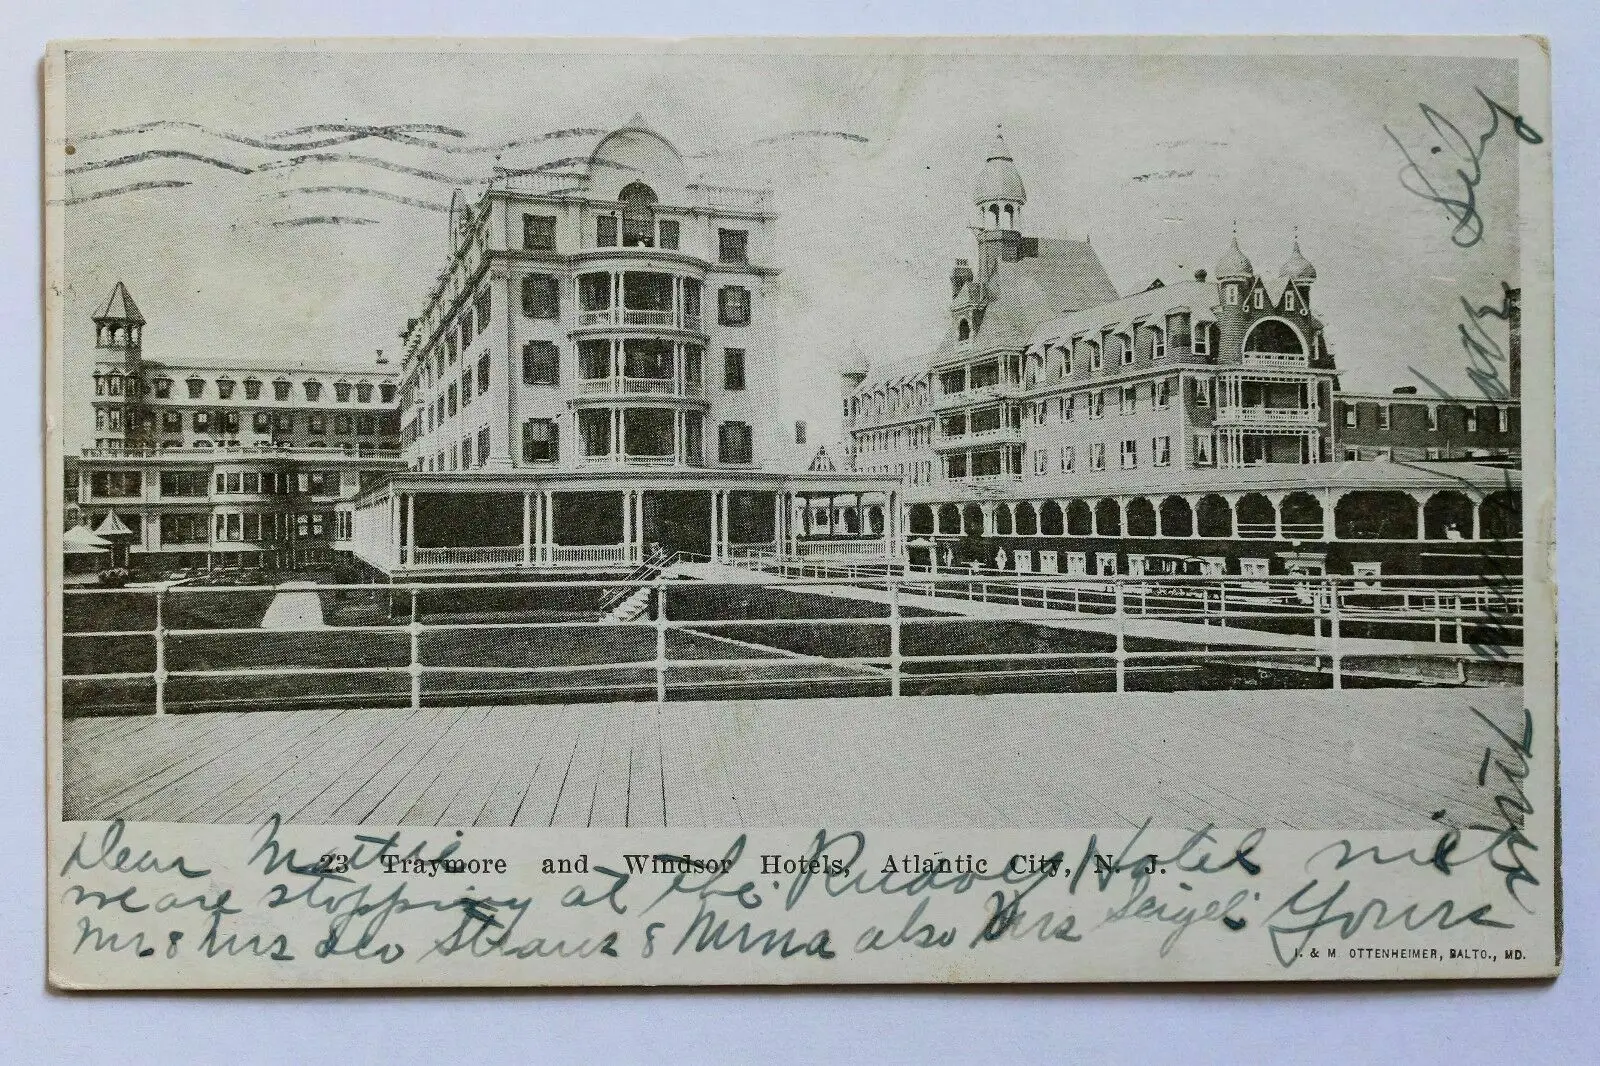 23 Traymore and Windsor Hotels, Atlantic City, N. J.
Dear Mattie
we are stopping at the Rudolf Hotel met
Mr & Mrs Leo Straus & Mina also Mrs Seigel Yours
with much love
I. & M. OTTENHEIMER, BALTO., MD.